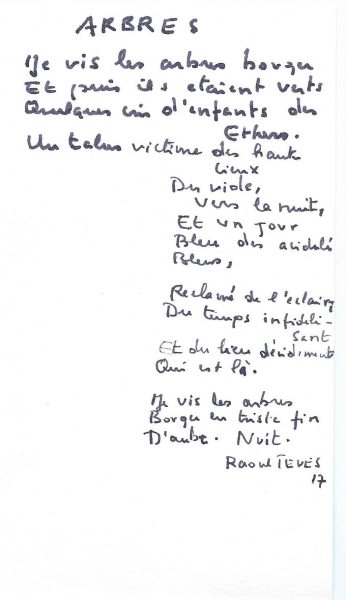 ARBRES
Je vis les arbres bouger
Et puis ils etaient verts
Quelques cris d'enfants des
Ethers.
Un talus victime des hauts
lieux
Du viole,
Vers la nuit,
Et un jour
Bleu des acidulé
Bleus,
Reclamé de l'eclairg
Du temps infideli-
sant
Et du lieu décidément
Qui est là.
Je vis les arbres
Bouger en triste fin
D'aube. Nuit.
Raoul TEVES
17